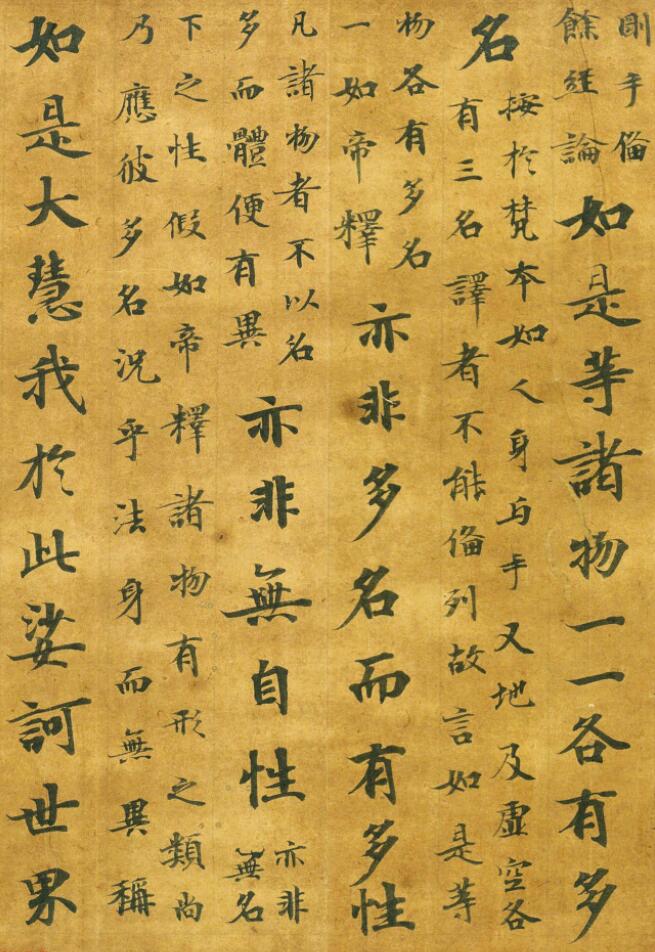 剛手俻
餘經論
如是等諸物一一各有多
名
按於梵本如人身与手又地及虛空各
有三名譯者不能俻列故言如是等
物各有多名
一如帝釋
亦非多名而有多性
凡諸物者不以名
多而體便有異
亦非無自性
亦非
無名
下之性假如帝釋諸物有形之類尚
乃應彼多名況乎法身而無異稱
如是大慧我於此娑訶世界